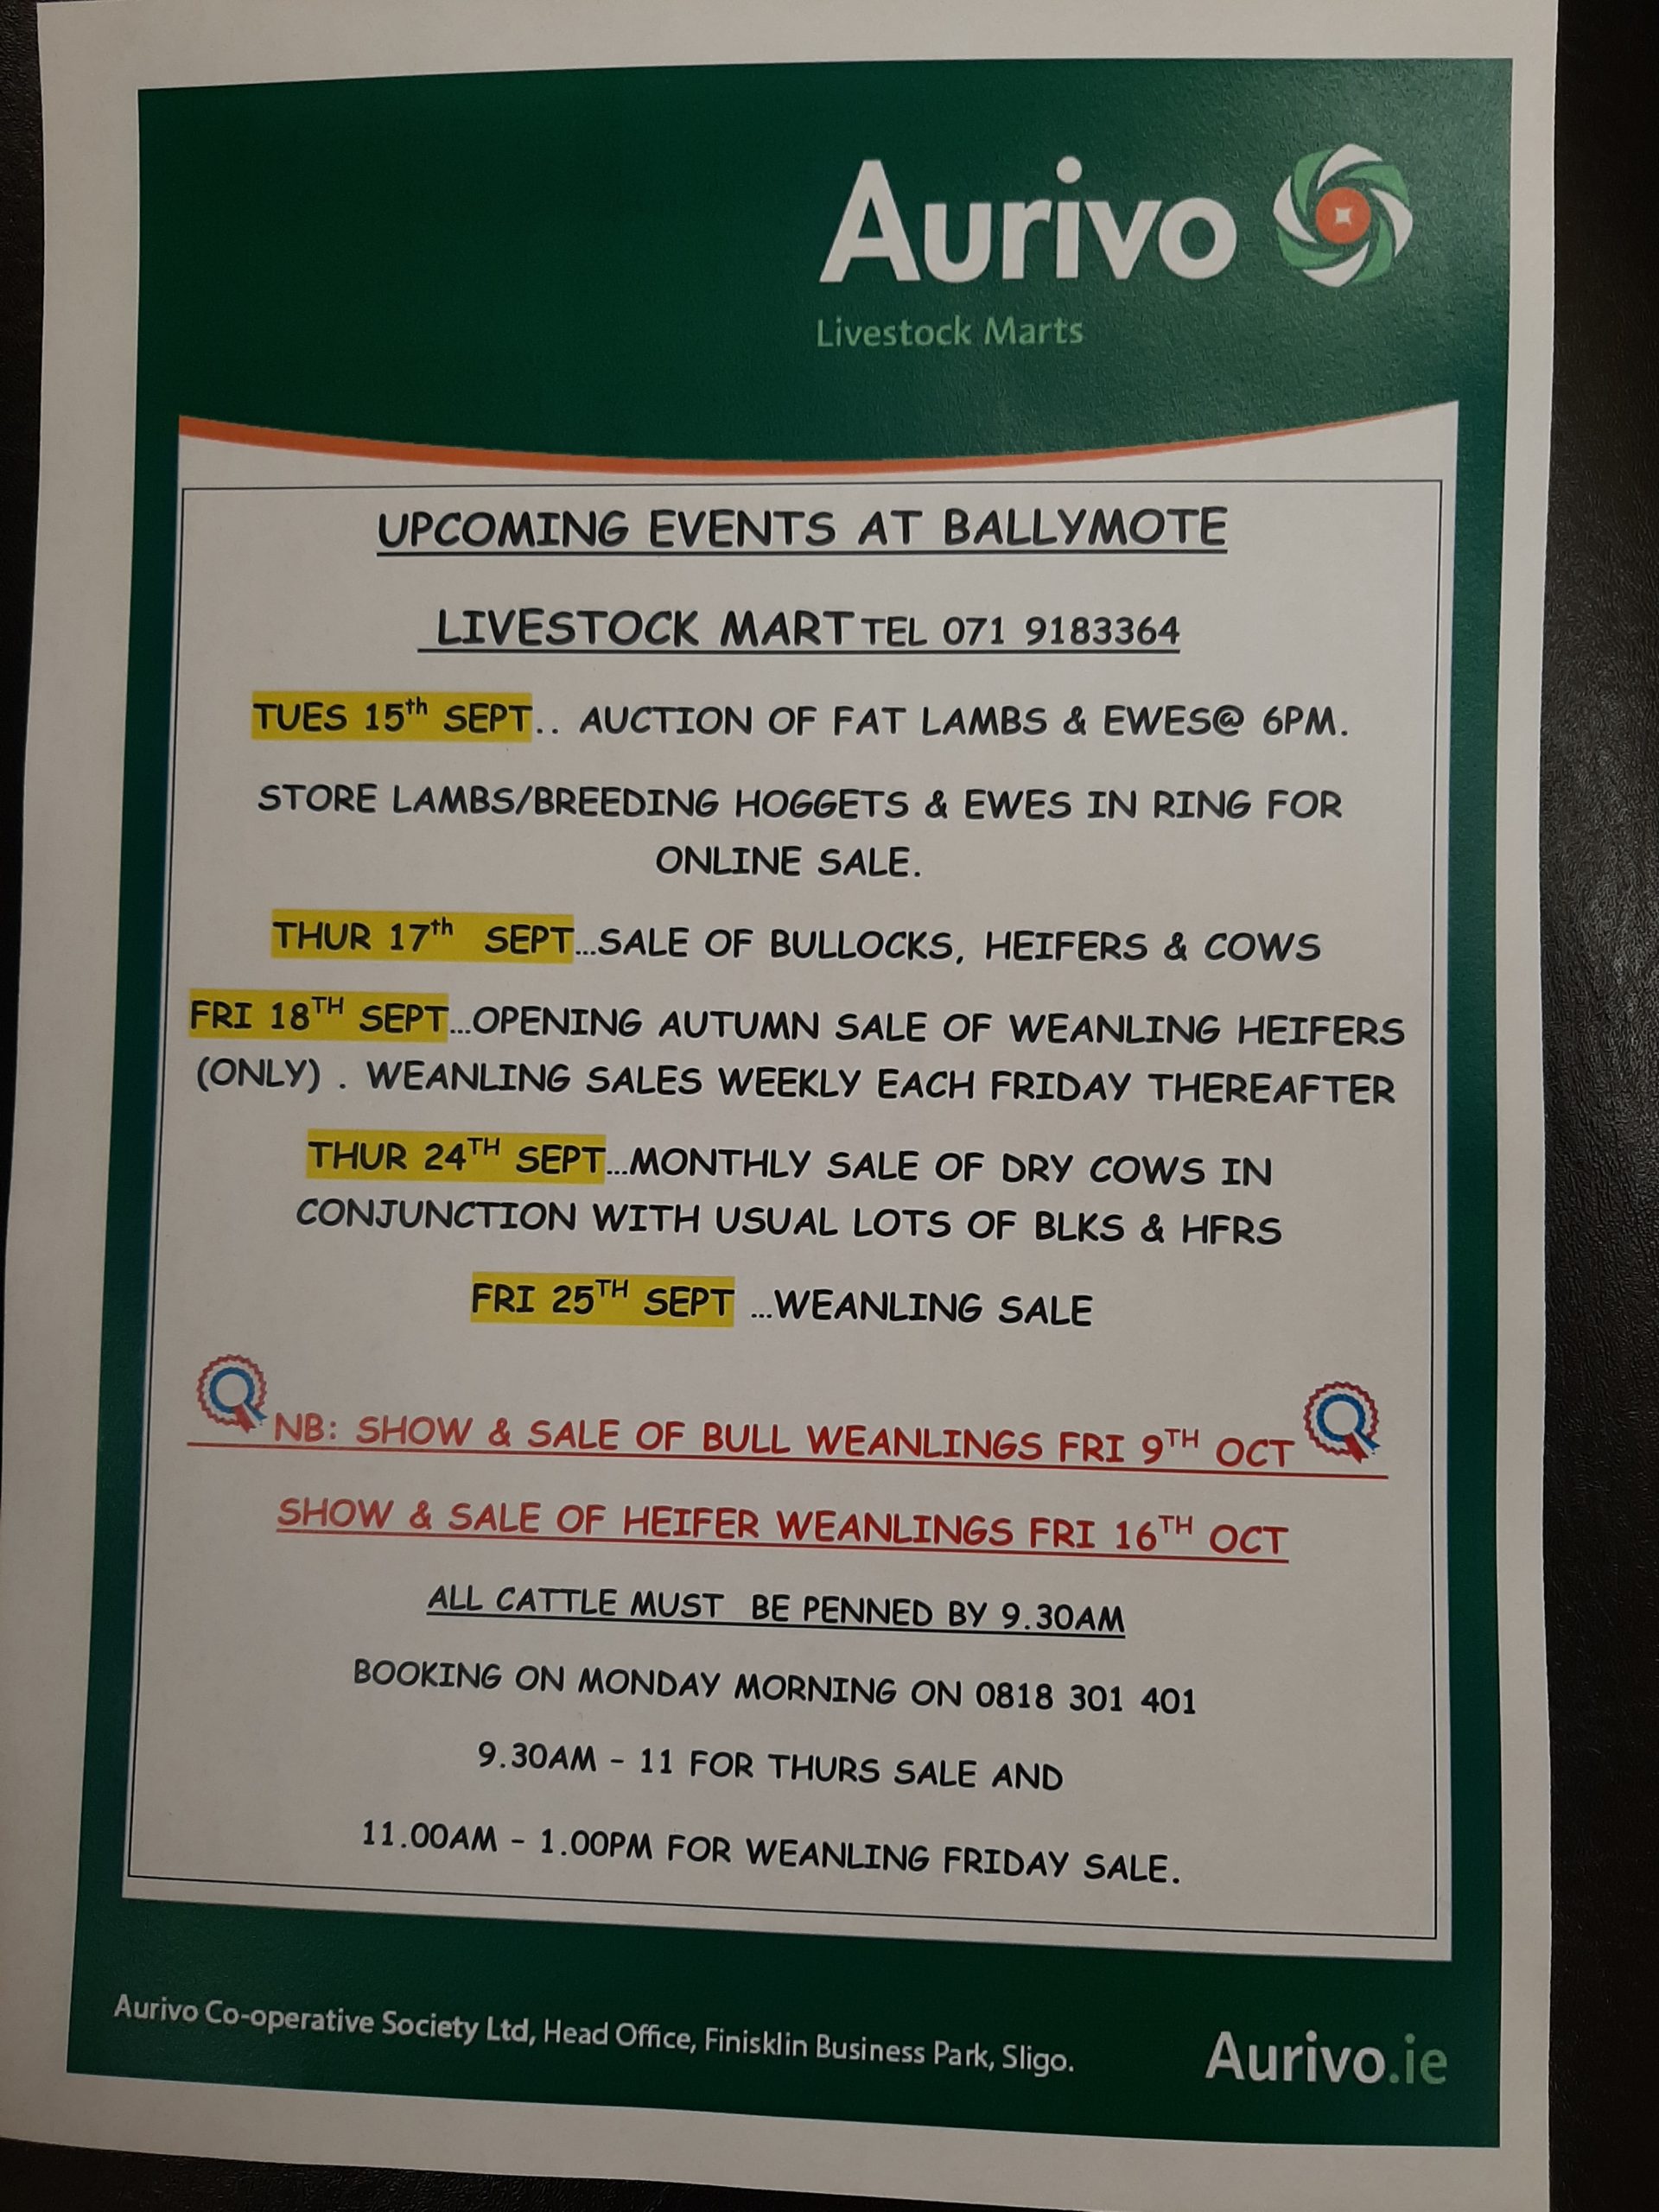 Aurivo
Livestock Marts
UPCOMING EVENTS AT BALLYMOTE
LIVESTOCK MART TEL 071 9183364
TUES 15th SEPT.. AUCTION OF FAT LAMBS & EWES@ 6PM.
STORE LAMBS/BREEDING HOGGETS & EWES IN RING FOR
ONLINE SALE.
THUR 17th SEPT...SALE OF BULLOCKS, HEIFERS & COWS
FRI 18TH SEPT...OPENING AUTUMN SALE OF WEANLING HEIFERS
(ONLY) . WEANLING SALES WEEKLY EACH FRIDAY THEREAFTER
THUR 24TH SEPT...MONTHLY SALE OF DRY COWS IN
CONJUNCTION WITH USUAL LOTS OF BLKS & HFRS
FRI 25TH SEPT ...WEANLING SALE
NB: SHOW & SALE OF BULL WEANLINGS FRI 9TH OCT
SHOW & SALE OF HEIFER WEANLINGS FRI 16TH OCT
ALL CATTLE MUST BE PENNED BY 9.30AM
BOOKING ON MONDAY MORNING ON 0818 301 401
9.30AM - 11 FOR THURS SALE AND
11.00AM - 1.00PM FOR WEANLING FRIDAY SALE.
Aurivo Co-operative Society Ltd, Head Office, Finisklin Business Park, Sligo.
Aurivo.ie